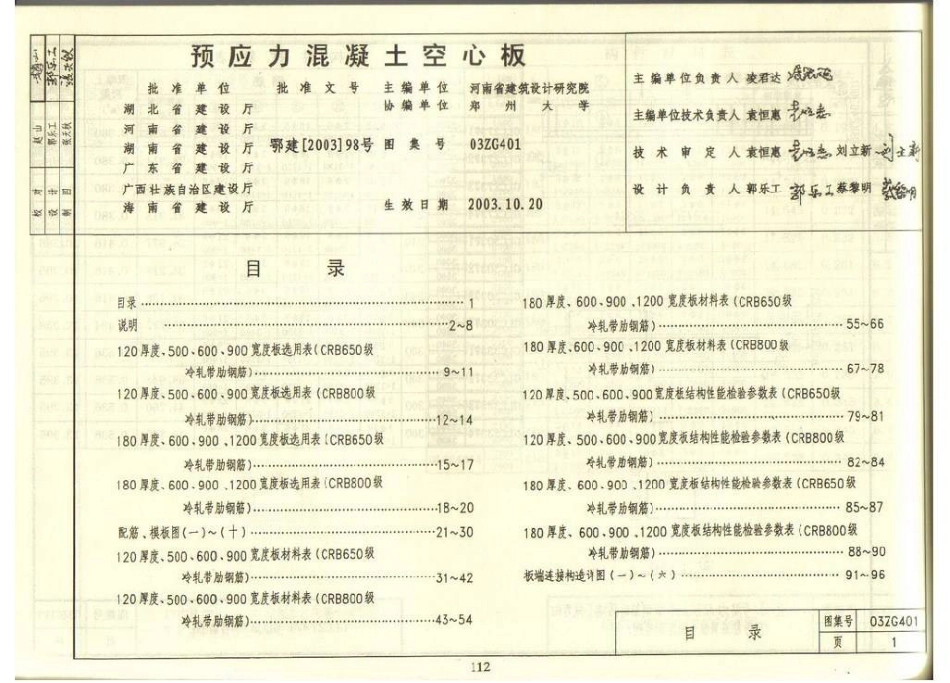 预应力混凝土空心板
批准单位 批准文号 主编单位 河南省建筑设计研究院
湖北省建设厅 协编单位 郑州大学
河南省建设厅
湖南省建设厅 鄂建[2003]98号 图集号 03ZG401
广东省建设厅
广西壮族自治区建设厅
海南省建设厅 生效日期 2003.10.20
主编单位负责人 凌君达
主编单位技术负责人 袁恒惠
技术审定人 袁恒惠 刘立新
设计负责人 郭乐工 蔡黎明
赵山
郭乐工
张天秋
校对
设计
制图
目录
目录 1
说明 2~8
120厚度、500、600、900宽度板选用表(CRB650级
冷轧带肋钢筋) 9~11
120厚度、500、600、900宽度板选用表(CRB800级
冷轧带肋钢筋) 12~14
180厚度、600、900、1200宽度板选用表(CRB650级
冷轧带肋钢筋) 15~17
180厚度、600、900、1200宽度板选用表(CRB800级
冷轧带肋钢筋) 18~20
配筋、模板图(一)~(十) 21~30
120厚度、500、600、900宽度板材料表(CRB650级
冷轧带肋钢筋) 31~42
120厚度、500、600、900宽度板材料表(CRB800级
冷轧带肋钢筋) 43~54
180厚度、600、900、1200宽度板材料表(CRB650级
冷轧带肋钢筋) 55~66
180厚度、600、900、1200宽度板材料表(CRB800级
冷轧带肋钢筋) 67~78
120厚度、500、600、900宽度板结构性能检验参数表(CRB650级
冷轧带肋钢筋) 79~81
120厚度、500、600、900宽度板结构性能检验参数表(CRB800级
冷轧带肋钢筋) 82~84
180厚度、600、900、1200宽度板结构性能检验参数表(CRB650级
冷轧带肋钢筋) 85~87
180厚度、600、900、1200宽度板结构性能检验参数表(CRB800级
冷轧带肋钢筋) 88~90
板端连接构造详图(一)~(六) 91~96
目录 图集号 03ZG401
页 1
112